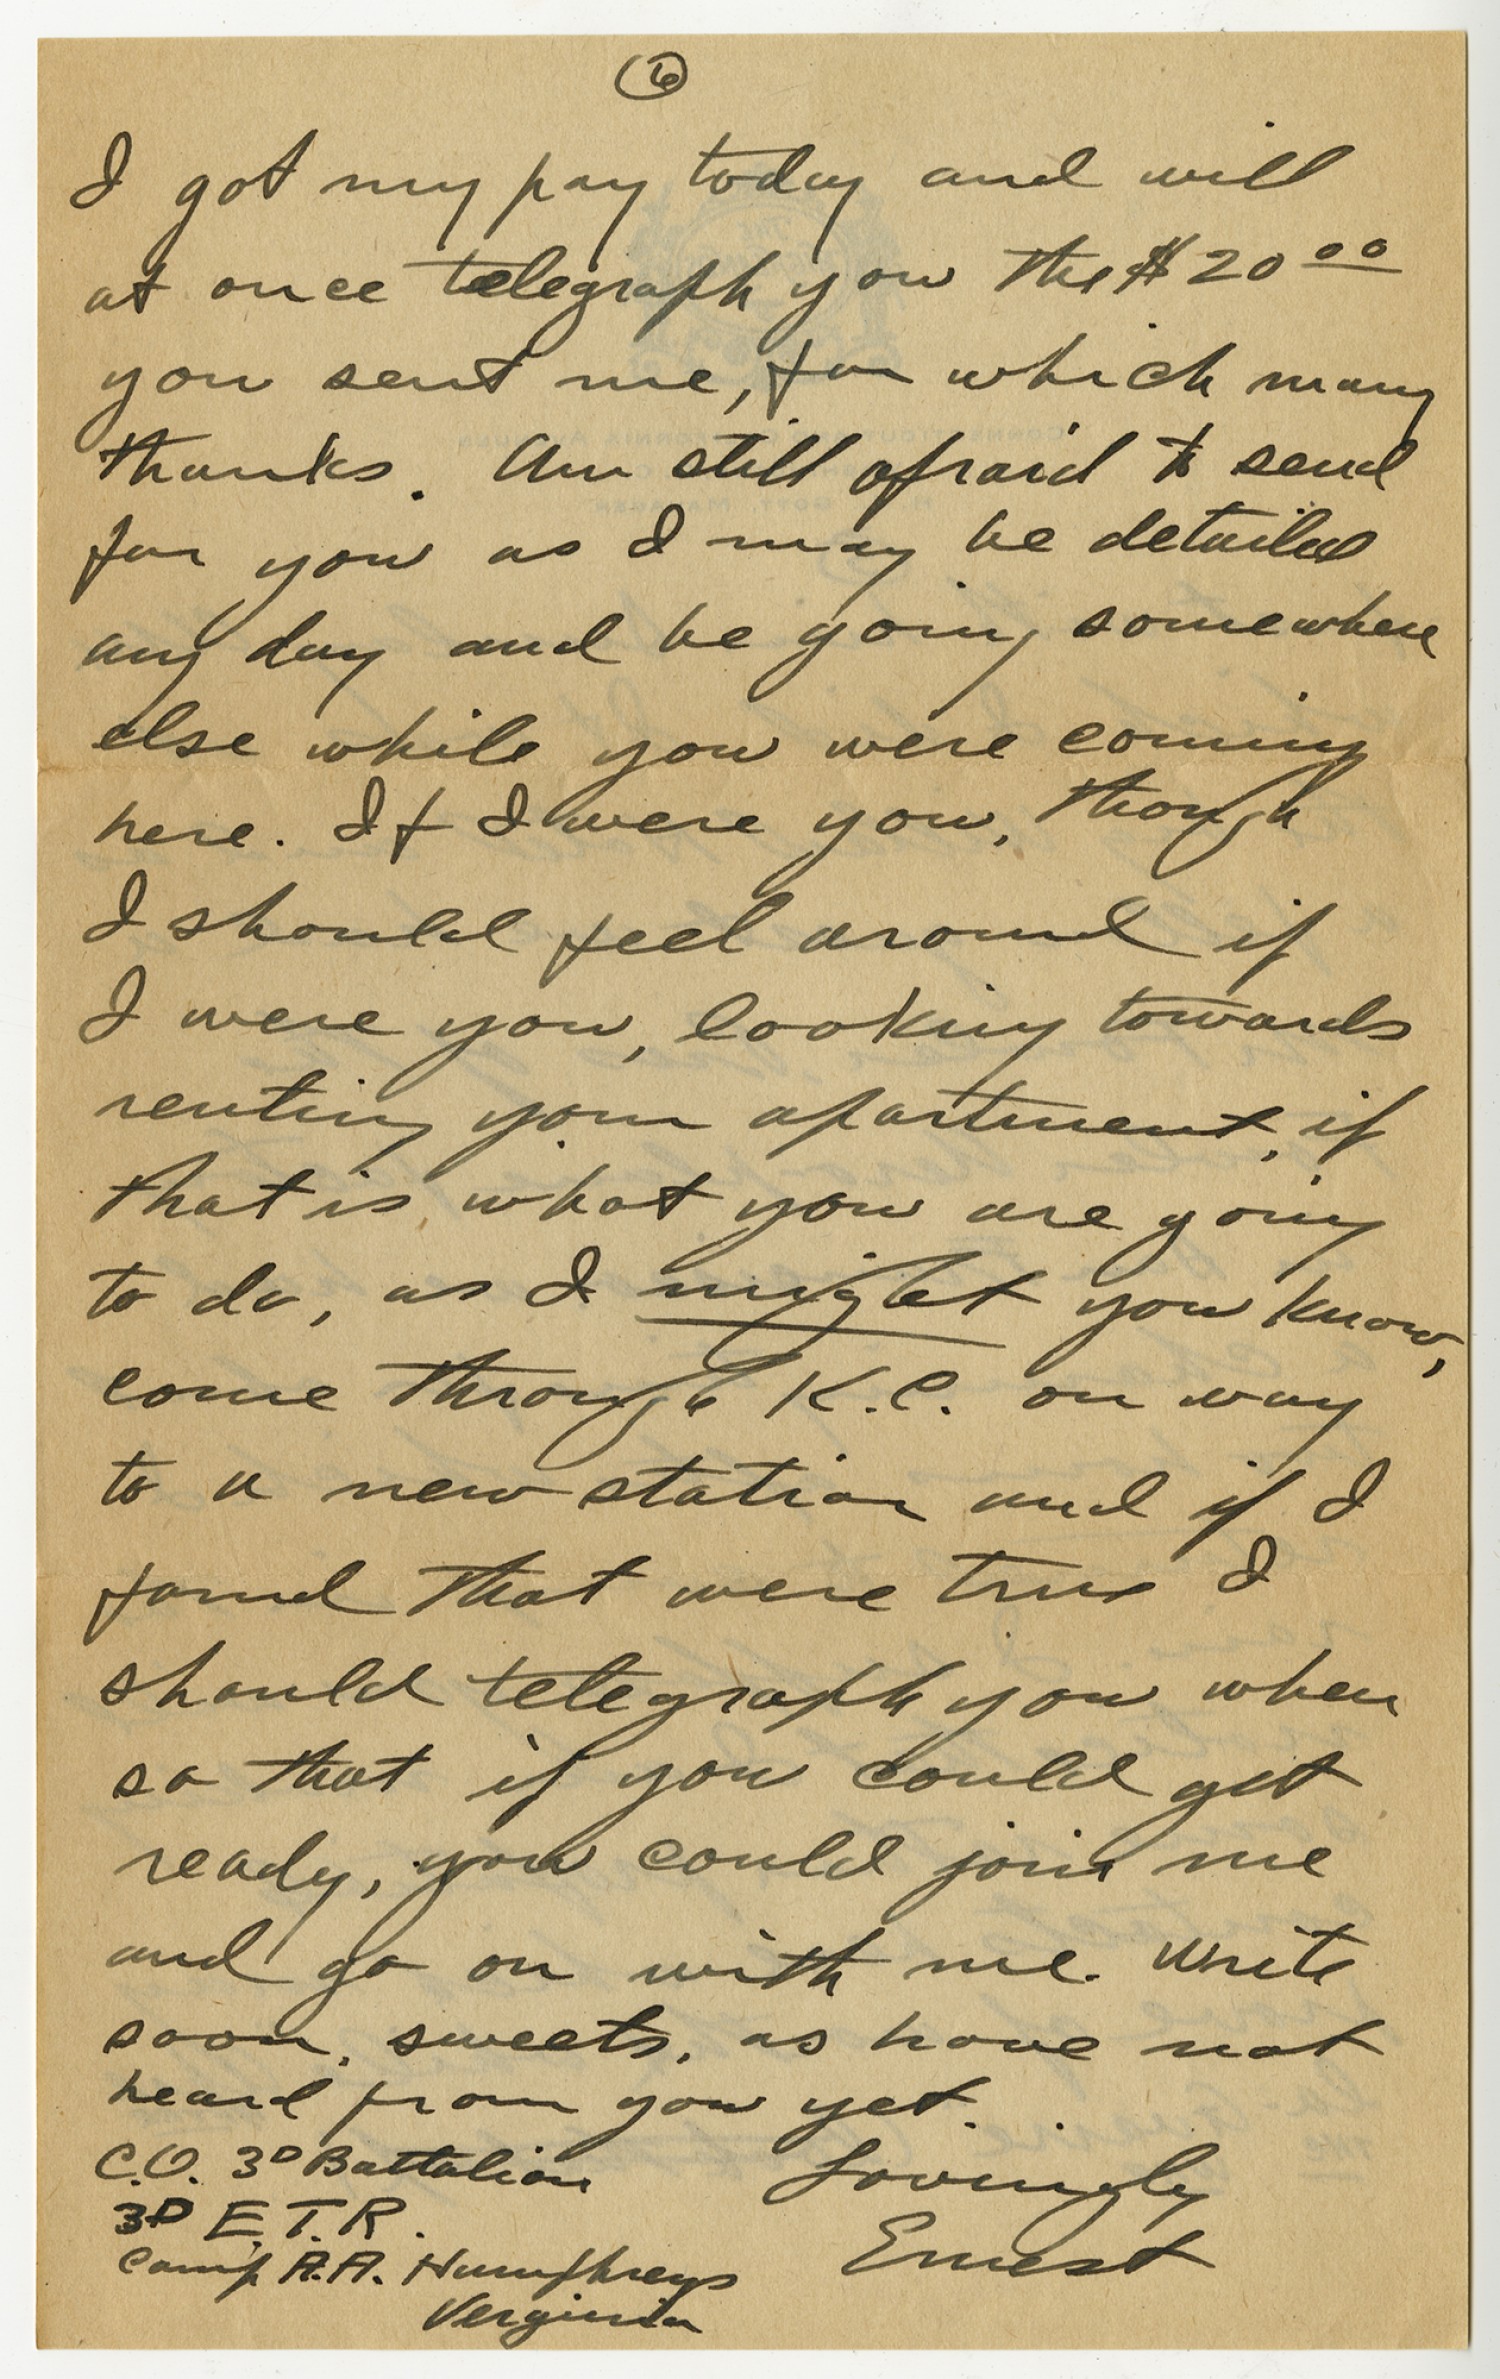 6
I got my pay today and will
at once telegraph you the $20 00
you sent me, for which many
thanks. Am still afraid to send
for you as I may be detailed
any day and be going somewhere
else while you were coming
here. If I were you, though
I should feel around if
I were you, looking towards
renting your apartment, if
that is what you are going
to do, as I might you know,
come through K.C. on way
to a new station and if I
found that were true I
should telegraph you when
so that if you could get
ready, you could join me
and go on with me. Write
soon, sweets, as have not
heard from you yet.
Lovingly
Ernest
C.O. 3D Battalion
3D E.T.R.
Camp A.A. Humphreys
Verginia